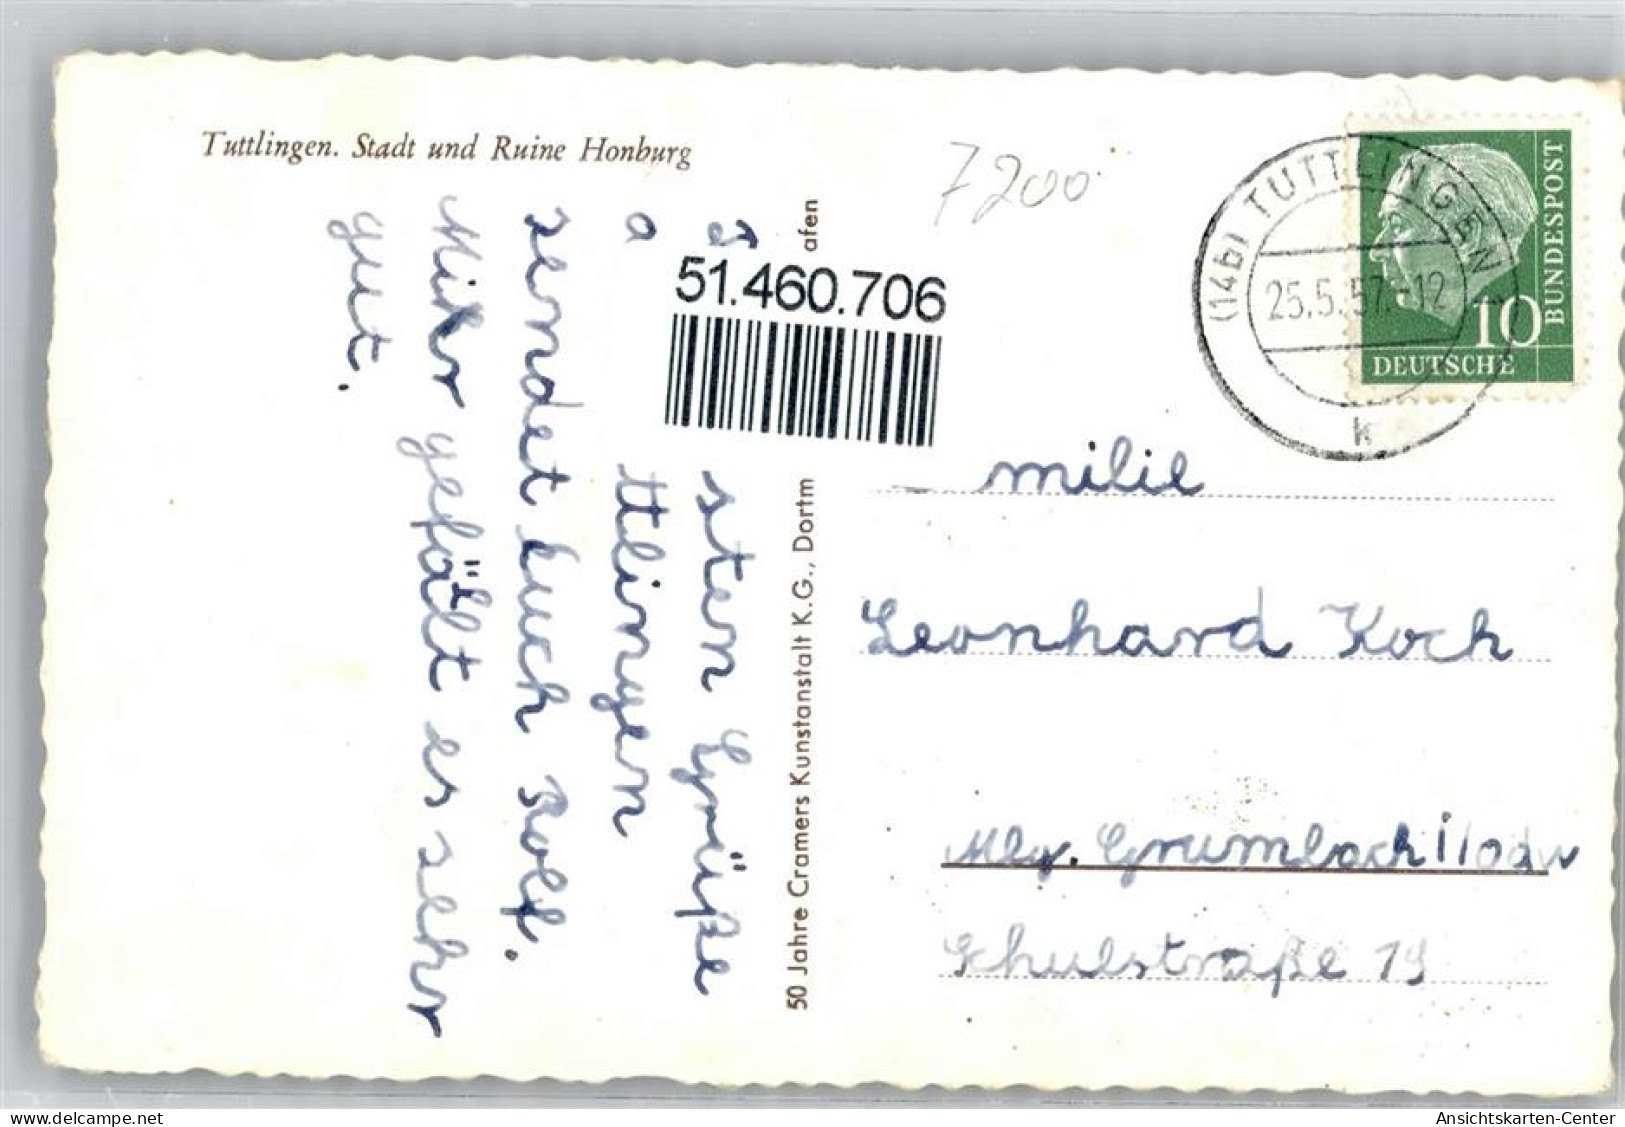 Tuttlingen. Stadt und Ruine Honburg
7200
(14b) TUTTLINGEN
25.5.57.-12
k
BUNDESPOST
10
DEUTSCHE
51.460.706
sten Grüße
a ttlingen
sendet Euch Rolf.
Mihr gefält es sehr
gut.
50 Jahre Cramers Kunstanstalt K.G., Dortm afen
milie
Leonhard Koch
Grumbach
Schulstraße 19
delcampe.net
Ansichtskarten-Center